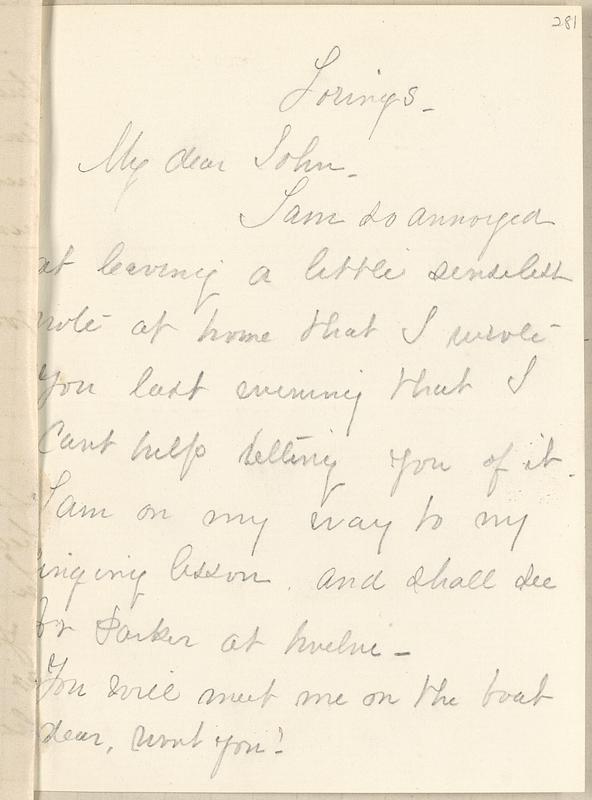 281
Lorings -
My dear John -
I am so annoyed
at leaving a little senseless
note at home that I wrote
you last evening that I
Cant help telling you of it.
I am on my way to my
singing lesson. and shall see
Dr Parker at twelve -
You will meet me on the boat
dear, wont you!